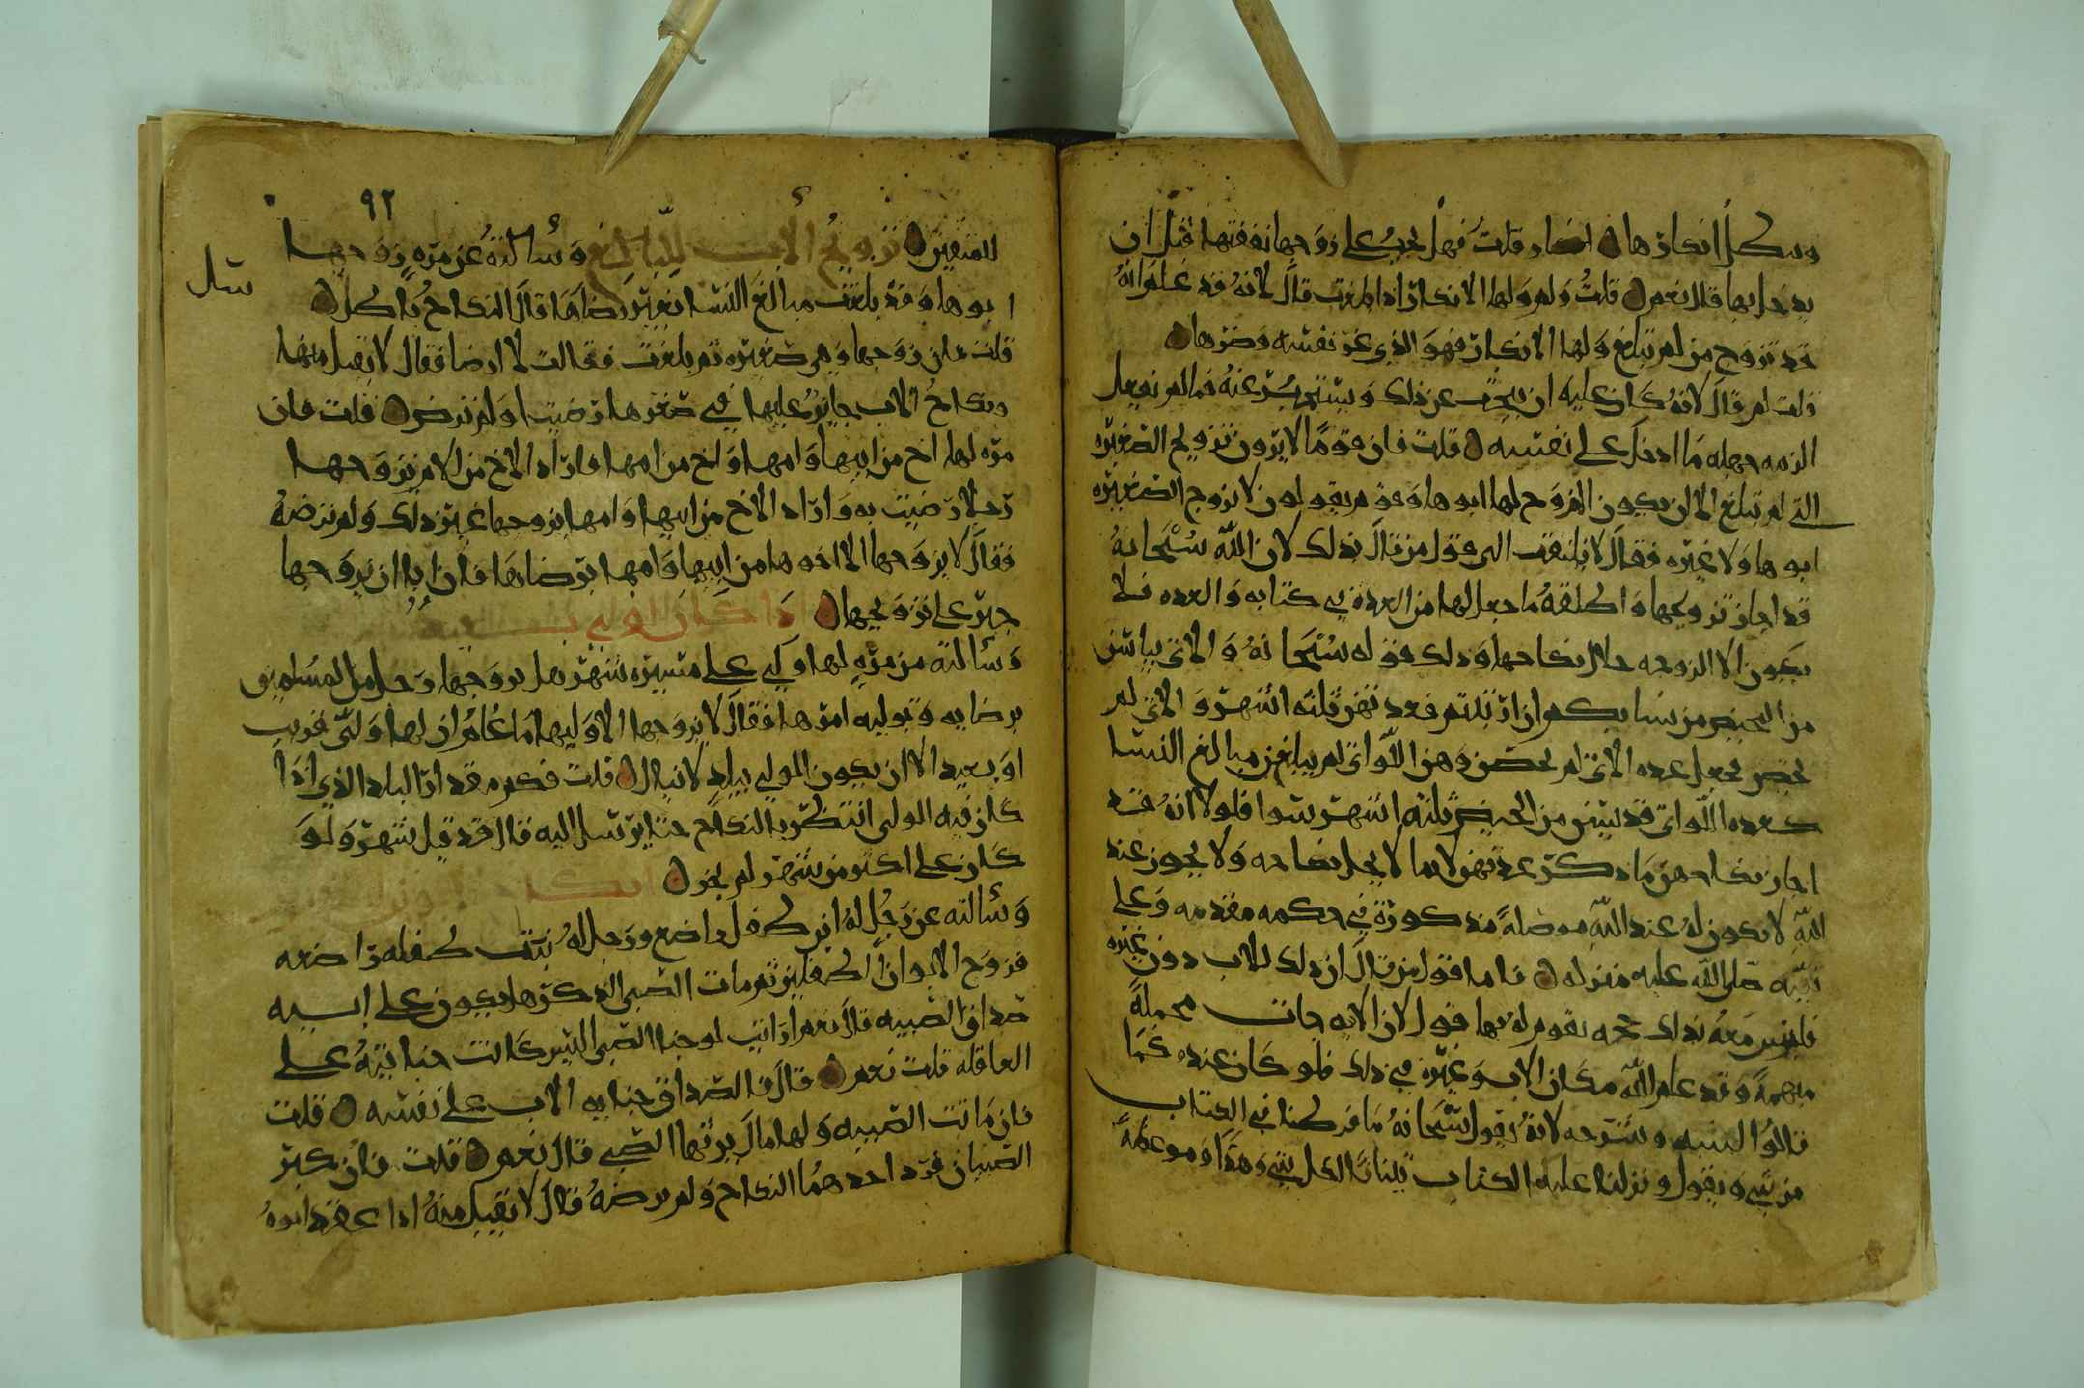 وبطل انكارها قلت فهل يجب على زوجها نفقتها قبل ان
يدخل بها قال نعم قلت ولم ولها الانكار اذا بلغت قال لانه قد علم انه
قد تزوج من لم تبلغ ولها الانكار فهو الذي غر نفسه وضرها
قلت لم قال لانه كان عليه ان يبحث عن ذلك ويستخبر عنه فما لم يفعل
الزمه جهله ما ادخل على نفسه قلت فان قوما لا يرون تزويج الصغيره
التي لم تبلغ الا ان يكون المزوج لها ابوها وقوم يقولون لا يزوج الصغيره
ابوها ولا غيره فقال لا يلتفت الى قول من قال بذلك لان الله سبحانه
قد اجاز تزويجها واطلقه ما جعل لها من العده في كتابه والعده فلا
يكون الا لزوجه حلال نكاحها وذلك قوله سبحانه واللائي يئسن
من المحيض من نسايكم ان ارتبتم فعدتهن ثلثه اشهر واللائي لم
يحضن فجعل عده اللائي لم يحضن وهن اللواتي لم يبلغن مبالغ النسا
كعده اللواتي قد يئسن من المحيض ثلثه اشهر سوا فلولا انه قد
اجاز نكاحهن ما ذكر عدتهن لان ما لا يحل نكاحه ولا يجوز عند
الله لا يكون له عند الله موصله مذكورة في حكمه مقدمه وعلى
نبيه صلى الله عليه منزله فاما قول من قال ان ذلك للاب دون غيره
فليس معه بذلك حجه يقوم له بها قول لان الايه جات مجملة
مبهمة وقد علم الله مكان الاب وغيره في ذلك فلو كان عنده كما
قالوا لبينه وشرحه لانه يقول سبحانه ما فرطنا في الكتاب
من شي ويقول ونزلنا عليك الكتاب تبيانا لكل شي وهدا وموعظة
٩٢
للمتقين تزويج الاب للبالغ وسألته عن مره زوجها
ابوها وقد بلغت مبالغ النسا بغير رضاها قال النكاح باطل
قلت فان زوجها وهي صغيره ثم بلغت فقالت لا ارضا فقال لا يقبل منها
ونكاح الاب جايز عليها في صغرها رضيت او لم ترض قلت فان
مره لها اخ من ابيها وامها واخ من امها فاراد الاخ من الام تزوجها
رجلا رضيت به واراد الاخ من ابيها وامها يزوجها غير ذلك ولم ترضه
فقال لا يزوجها الا اخوها من ابيها وامها برضاها فان ابا ان يزوجها
جبر على تزويجها اذا كان الولي
وسألته عن مره لها ولي على مسيره شهر هل يزوجها رجل من المسلمين
برضايه وتوليه امرها فقال لا يزوجها الا وليها ما علم ان لها ولي قريب
او بعيد الا ان يكون الولي ببلد لا ينال قلت فكم مقدار البلد الذي اذا
كان فيه الولي انتظر بالنكاح حتا يرسل اليه قال قد قيل شهر ولو
كان على اكثر من شهر لم يجز
وسألته عن رجل له ابن طفل راضع ورجل له بنت طفله راضعه
فزوج الابوان الطفلين ثم مات الصبي الذكر هل يكون على ابيه
صداق الصبيه قال نعم ارايت لو جنا الصبي اليس كانت جنايته على
العاقله قلت نعم قال فالصداق جنايه الاب على نفسه قلت
فان ماتت الصبيه ولها مال يرثها الصبي قال نعم قلت فان كبر
الصبيان فرد احدهما النكاح ولم يرضه قال لا يقبل منه اذا عقد ابوه